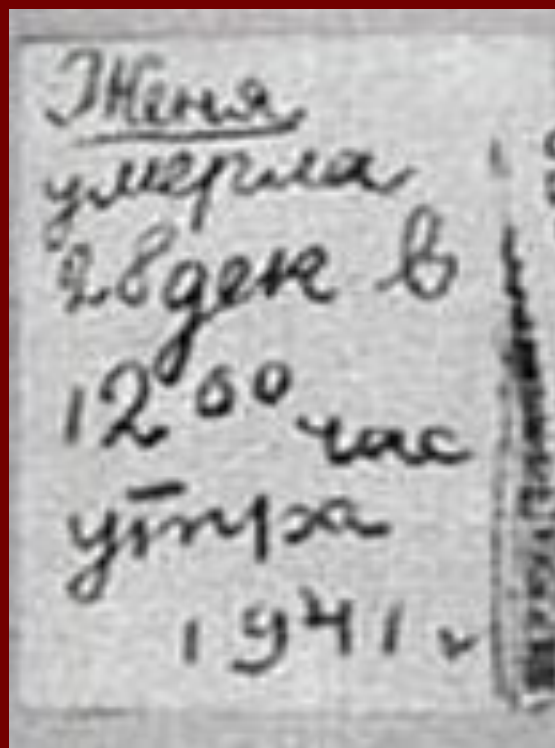 Женя
умерла
28 дек в
12⁰⁰ час
утра
1941 г